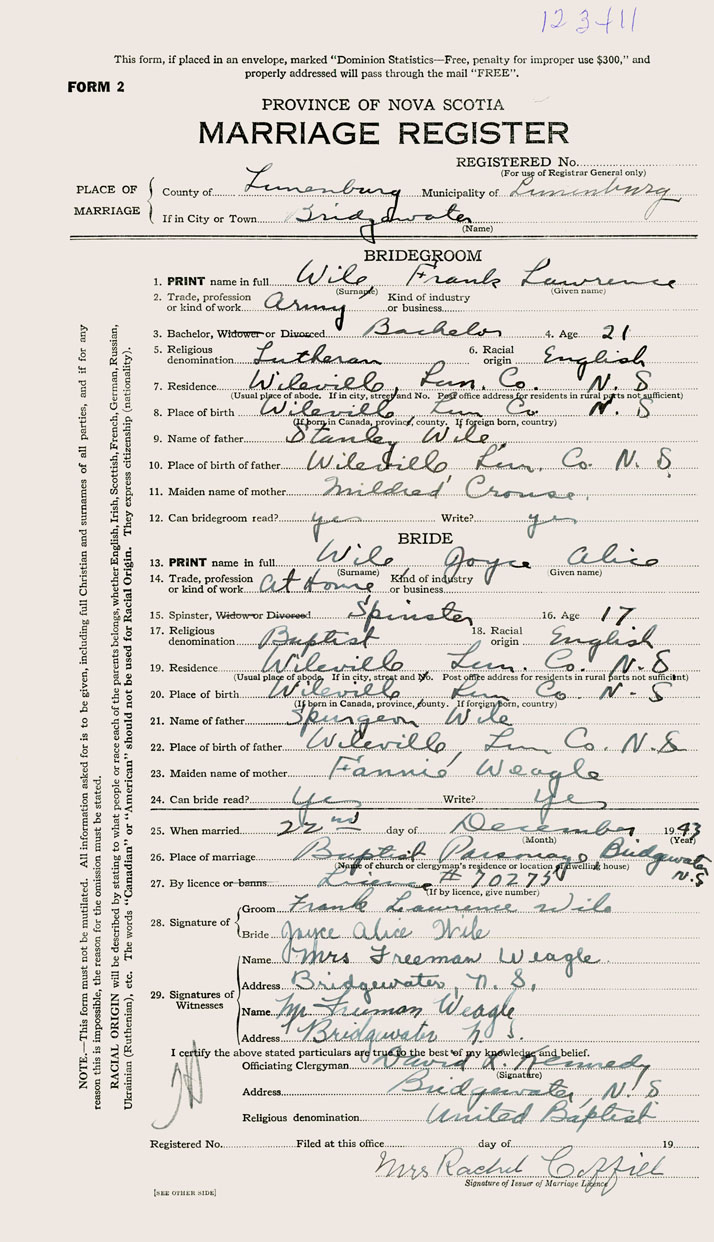 123411
This form, if placed in an envelope, marked "Dominion Statistics—Free, penalty for improper use $300," and
properly addressed will pass through the mail "FREE".
FORM 2
PROVINCE OF NOVA SCOTIA
MARRIAGE REGISTER
REGISTERED No.
(For use of Registrar General only)
PLACE OF MARRIAGE
County of Lunenburg Municipality of Lunenburg
If in City or Town Bridgewater
(Name)
BRIDEGROOM
1. PRINT name in full Wile, Frank Lawrence
(Surname) (Given name)
2. Trade, profession or kind of work Army Kind of industry or business
3. Bachelor, Widower or Divorced Bachelor 4. Age 21
5. Religious denomination Lutheran 6. Racial origin English
7. Residence Wileville, Lun. Co. N. S
(Usual place of abode. If in city, street and No. Post office address for residents in rural parts not sufficient)
8. Place of birth Wileville, Lun Co. N. S
(If born in Canada, province, county. If foreign born, country)
9. Name of father Stanley Wile
10. Place of birth of father Wileville Lun. Co. N. S.
11. Maiden name of mother Mildred Crouse.
12. Can bridegroom read? yes Write? yes
BRIDE
13. PRINT name in full Wile Joyce Alice
(Surname) (Given name)
14. Trade, profession or kind of work At Home Kind of industry or business
15. Spinster, Widow or Divorced Spinster 16. Age 17
17. Religious denomination Baptist 18. Racial origin English
19. Residence Wileville Lun. Co. N. S
(Usual place of abode. If in city, street and No. Post office address for residents in rural parts not sufficient)
20. Place of birth Wileville Lun Co. N - S
(If born in Canada, province, county. If foreign born, country)
21. Name of father Spurgeon Wile
22. Place of birth of father Wileville, Lun Co. N. S
23. Maiden name of mother Fannie Weagle
24. Can bride read? Yes Write? Yes
25. When married 22nd day of December 1943
(Month) (Year)
26. Place of marriage Baptist Parsonage Bridgewater N. S
(Name of church or clergyman's residence or location of dwelling house)
27. By licence or banns License # 70275
(If by licence, give number)
28. Signature of
Groom Frank Lawrence Wile
Bride Joyce Alice Wile
29. Signatures of Witnesses
Name Mrs Freeman Weagle.
Address Bridgewater, N. S.
Name Mr Freeman Weagle
Address Bridgewater N S.
I certify the above stated particulars are true to the best of my knowledge and belief.
Officiating Clergyman David K. Kennedy
(Signature)
Address Bridgewater, N. S
Religious denomination United Baptist
Registered No. Filed at this office day of 19
Mrs Rachel Coffill
Signature of Issuer of Marriage Licence
[SEE OTHER SIDE]
NOTE.—This form must not be mutilated. All information asked for is to be given, including full Christian and surnames of all parties, and if for any
reason this is impossible, the reason for the omission must be stated.
RACIAL ORIGIN will be described by stating to what people or race each of the parents belongs, whether English, Irish, Scottish, French, German, Russian,
Ukrainian (Ruthenian), etc. The words "Canadian" or "American" should not be used for Racial Origin. They express citizenship (nationality).